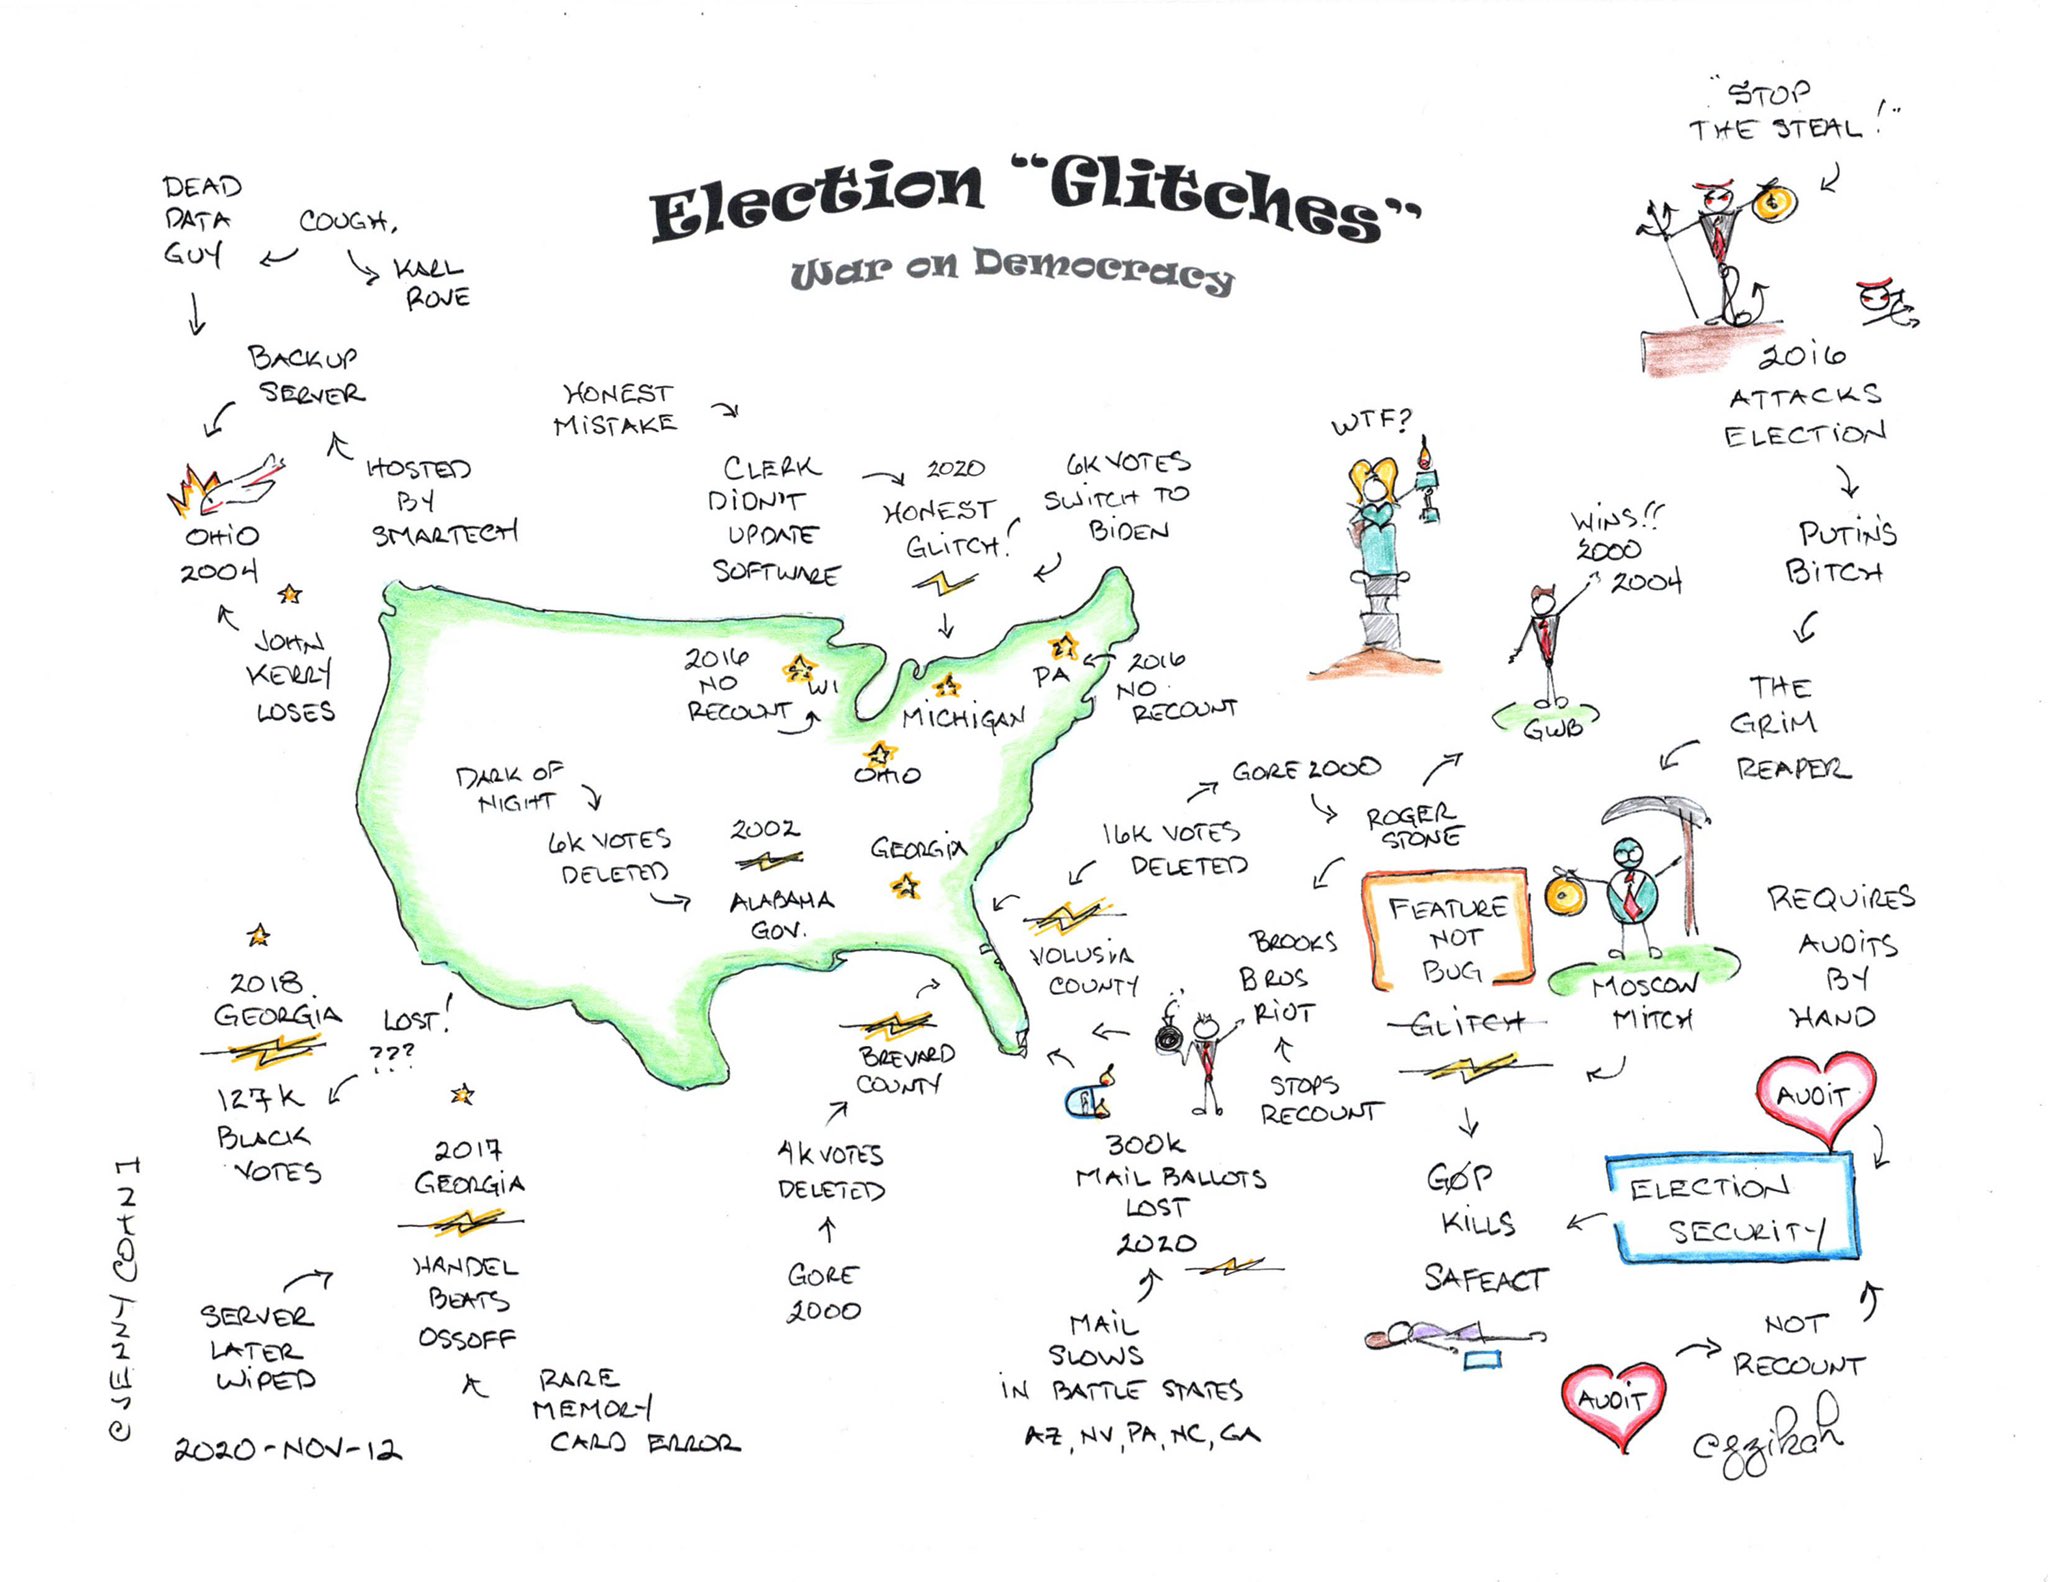 "STOP
THE STEAL!"
Election "Glitches"
War on Democracy
DEAD
DATA
GUY
COUGH,
KARL
ROVE
BACKUP
SERVER
HOSTED
BY
SMARTECH
OHiO
2004
JOHN
KERRY
LOSES
HONEST
MiSTAKE
CLERK
DiDN'T
UPDATE
SOFTWARE
2020
HONEST
GLiTCH!
6K VOTES
SWiTCH TO
BiDEN
WTF?
2016
ATTACKS
ELECTiON
PUTiN'S
BiTCH
THE
GRiM
REAPER
WiNS!!
2000
2004
GWB
2016
NO
RECOUNT
Wi
MiCHiGAN
PA
2016
NO
RECOUNT
OHiO
DARK OF
NiGHT
6K VOTES
DELETED
2002
ALABAMA
GOV.
GEORGiA
GORE 2000
16K VOTES
DELETED
ROGER
STONE
VOLUSiA
COUNTY
BROOKS
BROS
RiOT
STOPS
RECOUNT
FEATURE
NOT
BUG
GLiTCH
MOSCOW
MiTCH
REQUiRES
AUDiTS
BY
HAND
AUDiT
ELECTiON
SECURiTY
GOP
KiLLS
SAFEACT
NOT
RECOUNT
AUDiT
@gzikah
2018
GEORGiA
LOST!
???
127K
BLACK
VOTES
2017
GEORGiA
HANDEL
BEATS
OSSOFF
SERVER
LATER
WiPED
RARE
MEMORY
CARD ERROR
BREVARD
COUNTY
4K VOTES
DELETED
GORE
2000
300K
MAiL BALLOTS
LOST
2020
MAiL
SLOWS
iN BATTLE STATES
AZ, NV, PA, NC, GA
@JENNYCOHN1
2020-NOV-12